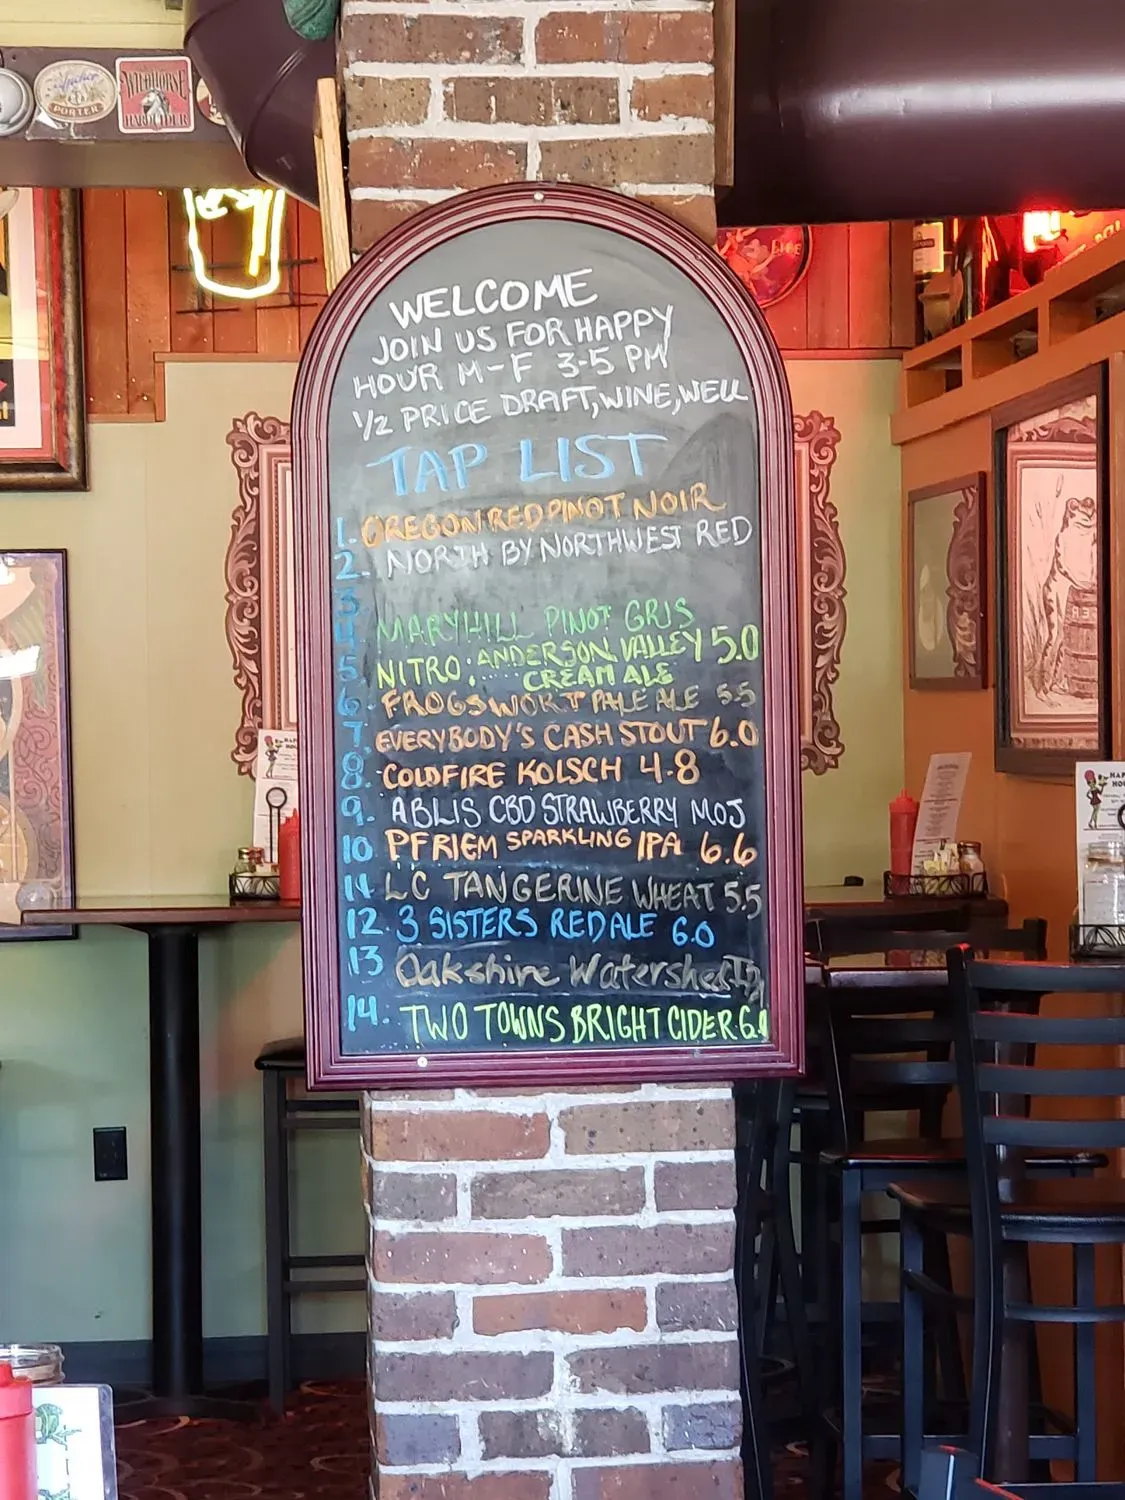 Anchor
PORTER
WILDHORSE
HARD CIDER
WELCOME
JOIN US FOR HAPPY
HOUR M-F 3-5 PM
1/2 PRICE DRAFT, WINE, WELL
TAP LIST
1. OREGON RED PINOT NOIR
2. NORTH BY NORTHWEST RED
3
4. MARYHILL PINOT GRIS
5. NITRO: ANDERSON VALLEY 5.0
CREAM ALE
6. FROGSWORT PALE ALE 5.5
7. EVERYBODY'S CASH STOUT 6.0
8. COLDFIRE KOLSCH 4.8
9. ABLIS CBD STRAWBERRY MOJ
10 PFRIEM SPARKLING IPA 6.6
11. LC TANGERINE WHEAT 5.5
12. 3 SISTERS RED ALE 6.0
13 Oakshire Watershed
14. TWO TOWNS BRIGHT CIDER 6.0